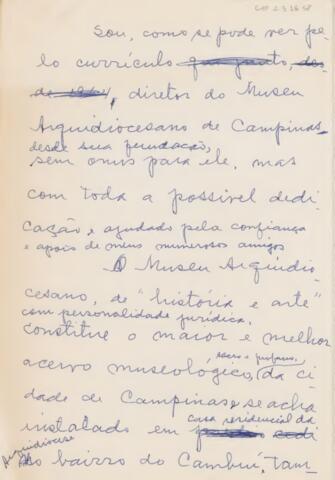 Sou, como se pode ver pe-
lo currículo
de 1964, diretor do Museu
Arquidiocesano de Campinas
desde sua fundação,
sem onus para ele, mas
com toda a possivel dedi
cação e ajudado pela confiança
e apoio de meus numerosos amigos
O Museu Arquidio
cesano, de "história e arte"
com personalidade jurídica,
constitue o maior e melhor
acervo museológico, da ci
dade de Campinas e se acha
instalado em casa residencial da
Arquidiocese
no bairro do Cambuí, tam